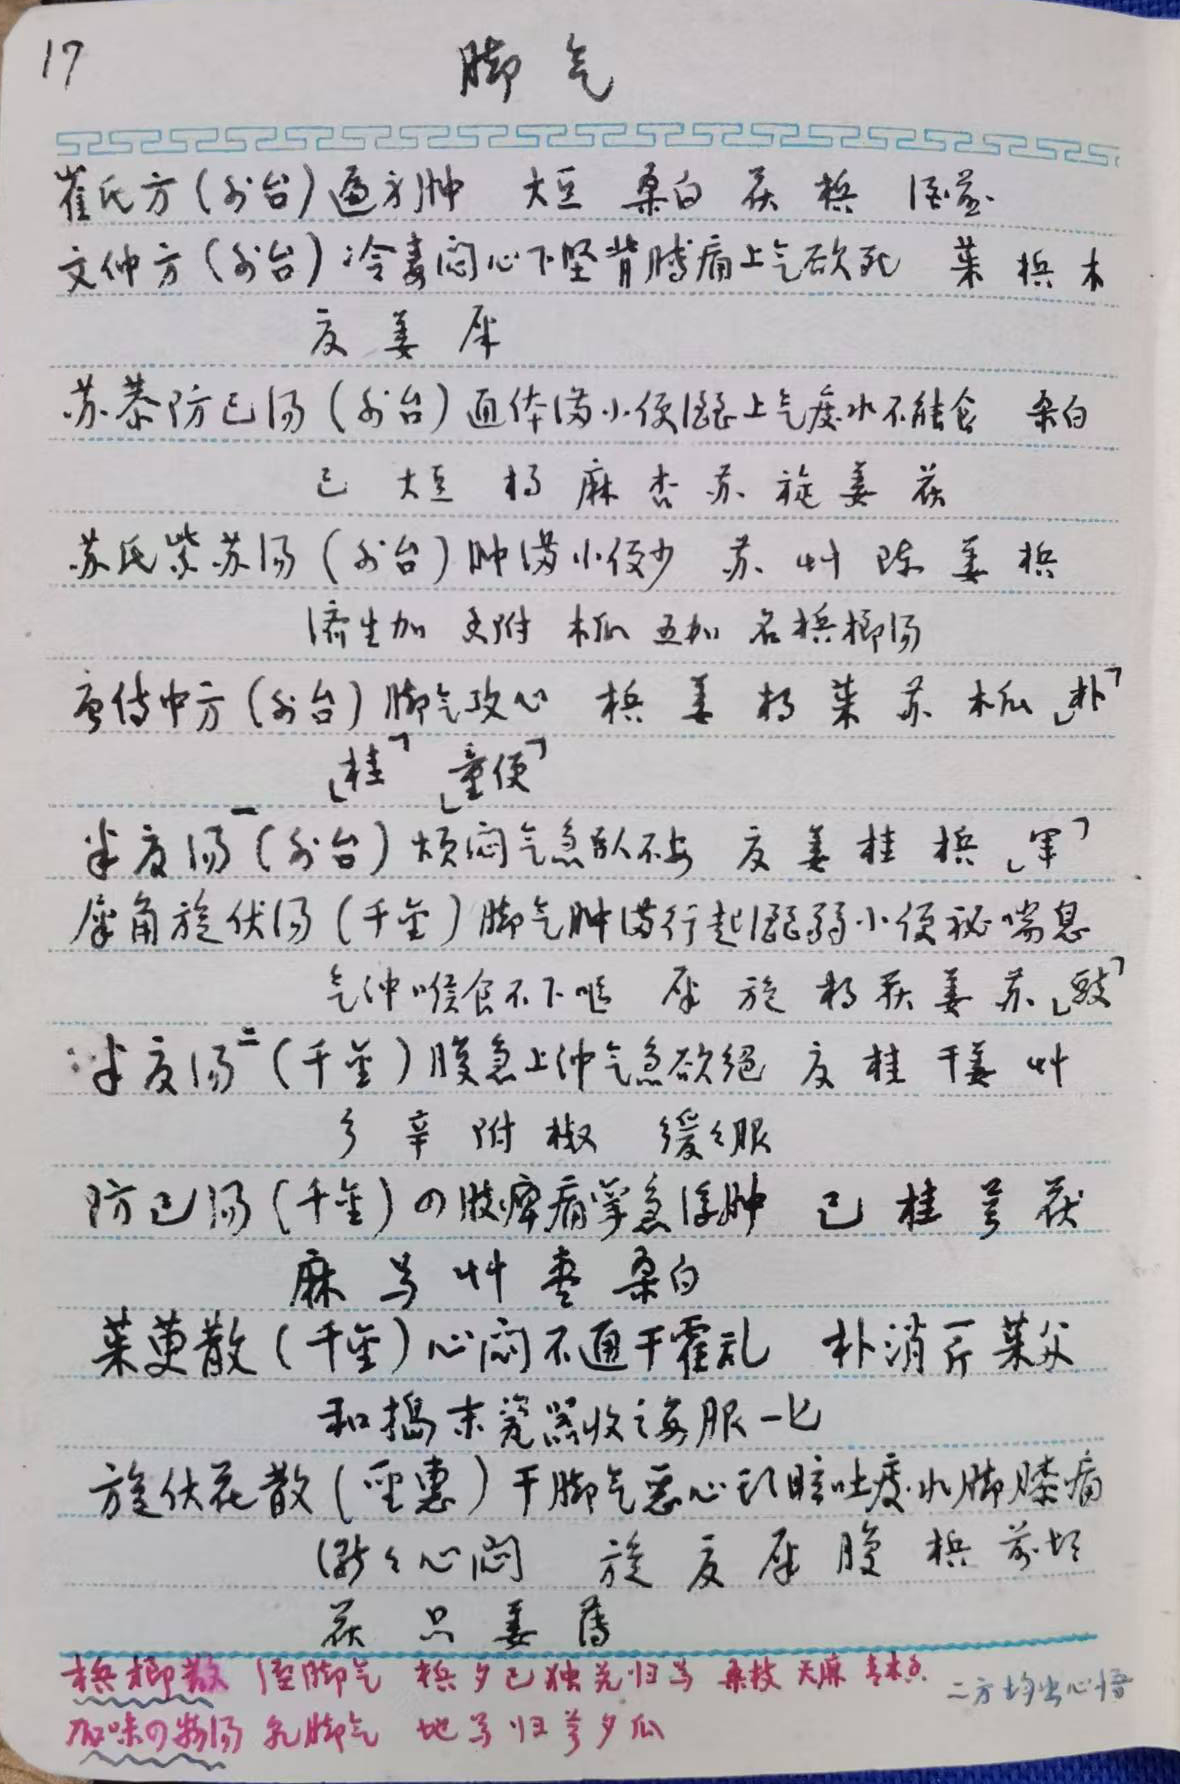 17
脚气
崔氏方(外台)遍身肿 大豆 桑白 茯 梹
文仲方(外台)冷毒闷心下坚背膊痛上气欲死 茱 梹 木
夏 姜 犀
苏恭防己汤(外台)通体满小便涩上气痰水不能食 桑白
己 大豆 橘 麻 杏 苏 旋 姜 茯
苏氏紫苏汤(外台)肿满小便少 苏 艸 陈 姜 梹
济生加 香附 木瓜 五加 名梹榔汤
唐侍中方(外台)脚气攻心 梹 姜 橘 茱 苏 木瓜 「朴」
「桂」 「童便」
半夏汤一(外台)烦闷气急卧不安 夏 姜 桂 梹 「军」
犀角旋伏汤(千金)脚气肿满行起涩弱小便秘喘息
气冲喉食不下呕 犀 旋 橘 茯 姜 苏 「豉」
半夏汤二(千金)腹急上冲气急欲绝 夏 桂 干姜 艸
参 辛 附 椒 缓〻服
防己汤(千金)の肢痹痛挛急浮肿 己 桂 芎 茯
麻 芍 艸 枣 桑白
茱萸散(千金)心闷不通干霍乱 朴消 斤 茱
和捣末瓷器收之每服一匕
旋伏花散(圣惠)干脚气恶心头眩吐痰水脚膝痛
渐〻心闷 旋 夏 犀 腹 梹 前胡
茯 只 姜
梹榔散 湿脚气 梹 夕 己 独 羌 归 芍 桑枝 天麻 青木香
加味の物汤 乳脚气 地 芍 归 芎 夕 瓜
二方均出心悟